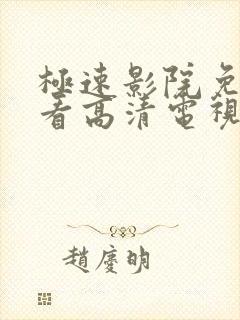 極速影院免
看高清電視
趙慶明